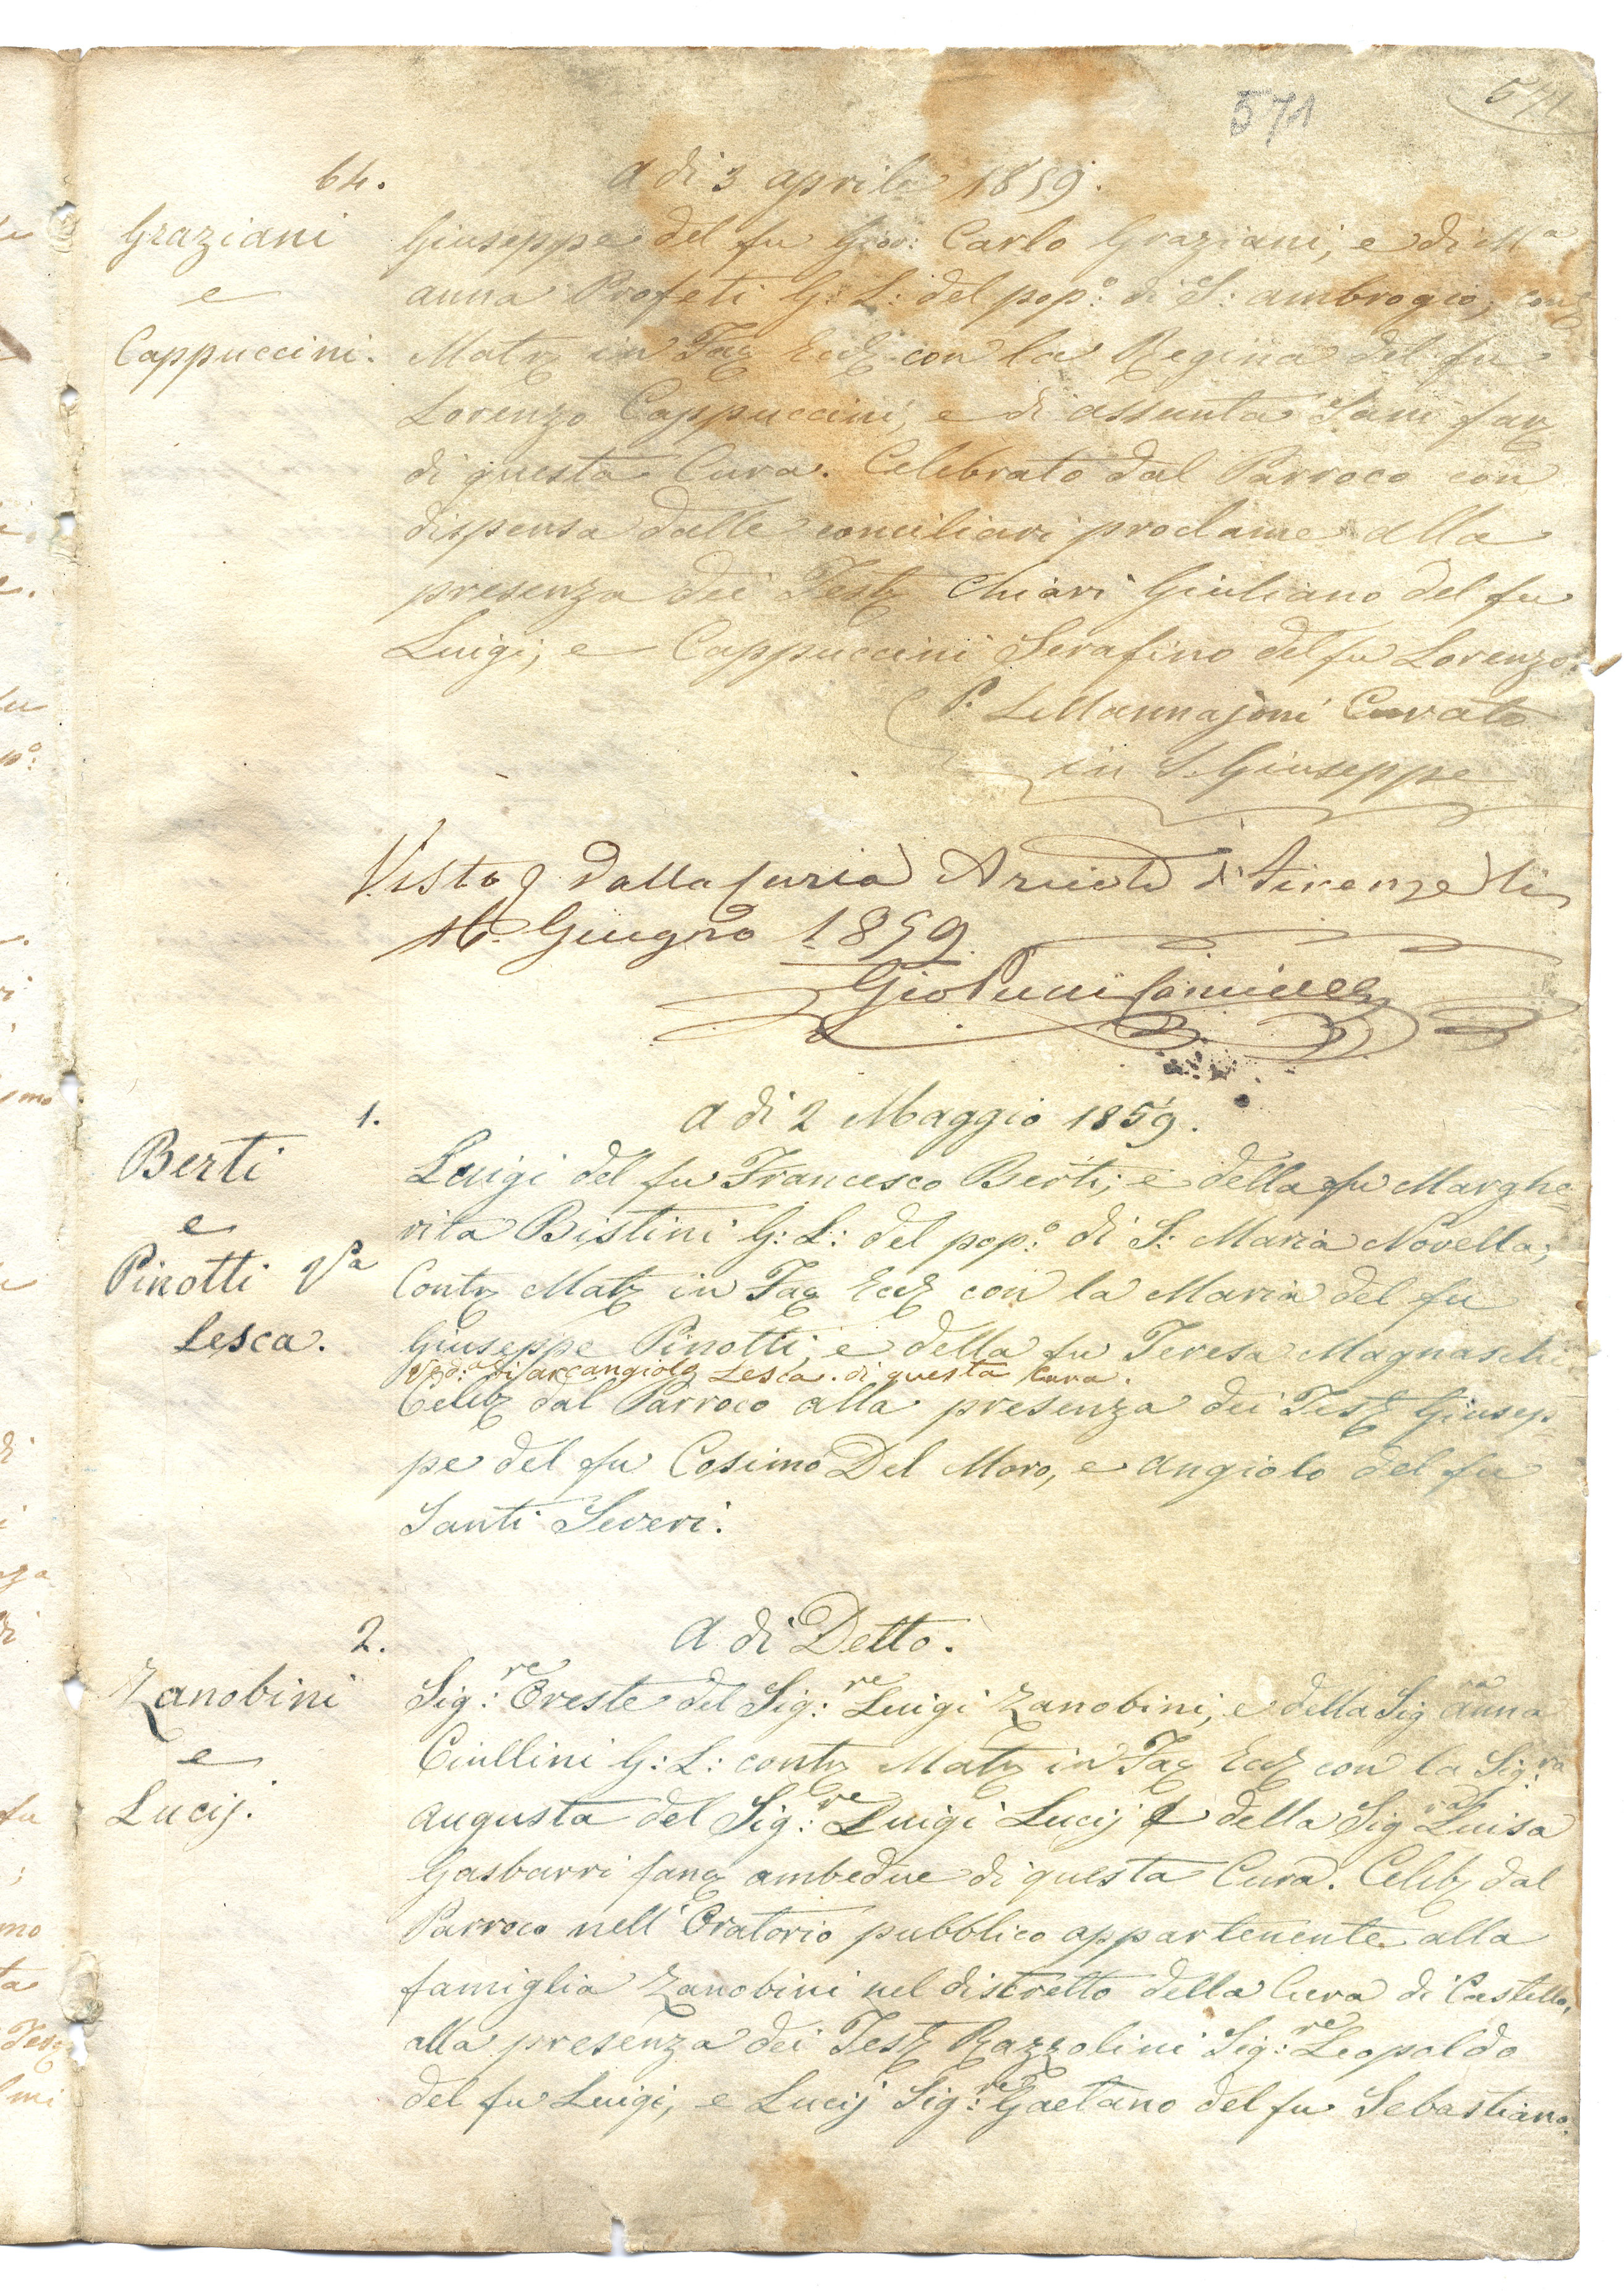 571
571
64.
A di 3 aprile 1859.
Graziani
e
Cappuccini.
Giuseppe del fu Gio: Carlo Graziani, e di Ma
anna Profeti G: L: del popo: di S: ambrogio, con
Mat in Fac Eccl con la Regina del fu
Lorenzo Cappuccini, e di assunta Sani fan
di questa Cura. Celebrato dal Parroco con
dispensa dalle conciliari proclame alla
presenza dei Test Chiari Giuliano del fu
Luigi, e Cappuccini Serafino del fu Lorenzo.
P. L. Mannajoni Curato
in S. Giuseppe
Visto dalla Curia Arciv di Firenze li
16. Giugno 1859.
Gio Pucci Cancell
1.
A di 2 Maggio 1859.
Berti
e
Pinotti Va
Lesca.
Luigi del fu Francesco Berti, e della fu Marghe
rita Bistini G: L: del popo: di S: Maria Novella;
Cont Mat in Fac Eccl con la Maria del fu
Giuseppe Pinotti, e della fu Teresa Magnaschi
Veda: di arcangiolo Lesca. di questa Cura.
Celeb dal Parroco alla presenza dei Test Giusep-
pe del fu Cosimo Del Moro, e angiolo del fu
Santi Severi.
2.
A di Detto.
Zanobini
e
Lucij.
Sig:re Oreste del Sig:re Luigi Zanobini, e della Sigra anna
Ciullini G: L: cont Mat in Fac Eccl con la Sig:ra
augusta del Sig:re Luigi Lucij e della Sigra Luisa
Gasbarri fan ambedue di questa Cura. Celeb dal
Parroco nell'Oratorio pubblico appartenente alla
famiglia Zanobini nel distretto della Cura di Castello,
alla presenza dei Test Razzolini Sig:re Leopoldo
del fu Luigi, e Lucij Sig:re Gaetano del fu Sebastiano.